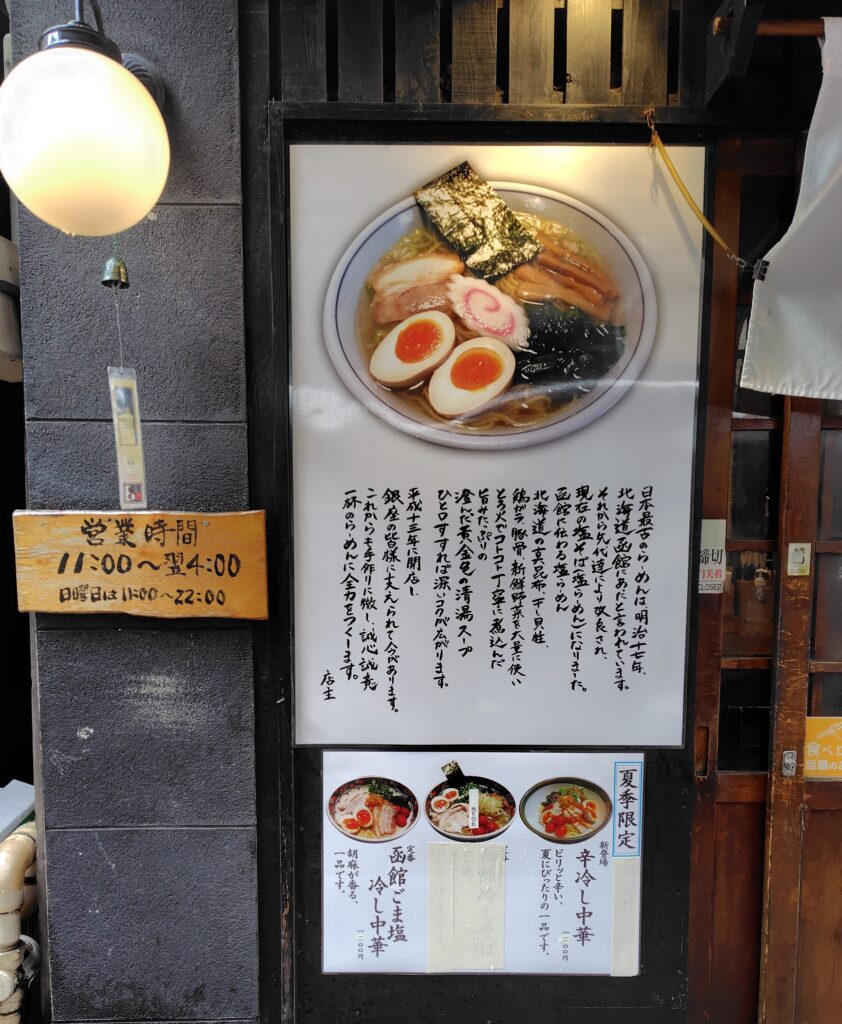 営業時間
11:00〜翌4:00
日曜日は11:00〜22:00
日本最古のらーめんは明治十七年、
北海道函館にあったと言われています。
それから先代達により改良され、
現在の塩そば(塩らーめん)になりました。
函館に伝わる塩らーめん
北海道の真昆布、干し貝柱、
鶏ガラ、豚骨、新鮮野菜を大量に使い
とろ火でコトコト丁寧に煮込んだ
旨みたっぷりの
澄んだ黄金色の清湯スープ
ひと口すすれば深いコクが広がります。
平成十三年に開店し、
銀座の皆様に支えられて今があります。
これからも手作りに徹し、誠心誠意
一杯のらーめんに全力をつくします。
店主
夏季限定
新登場
辛冷し中華
ピリッと辛い、
夏にぴったりの一品です。
定番
函館ごま塩
冷し中華
胡麻が香る、
一品です。
切
CLOSE
食べロ
話題のお